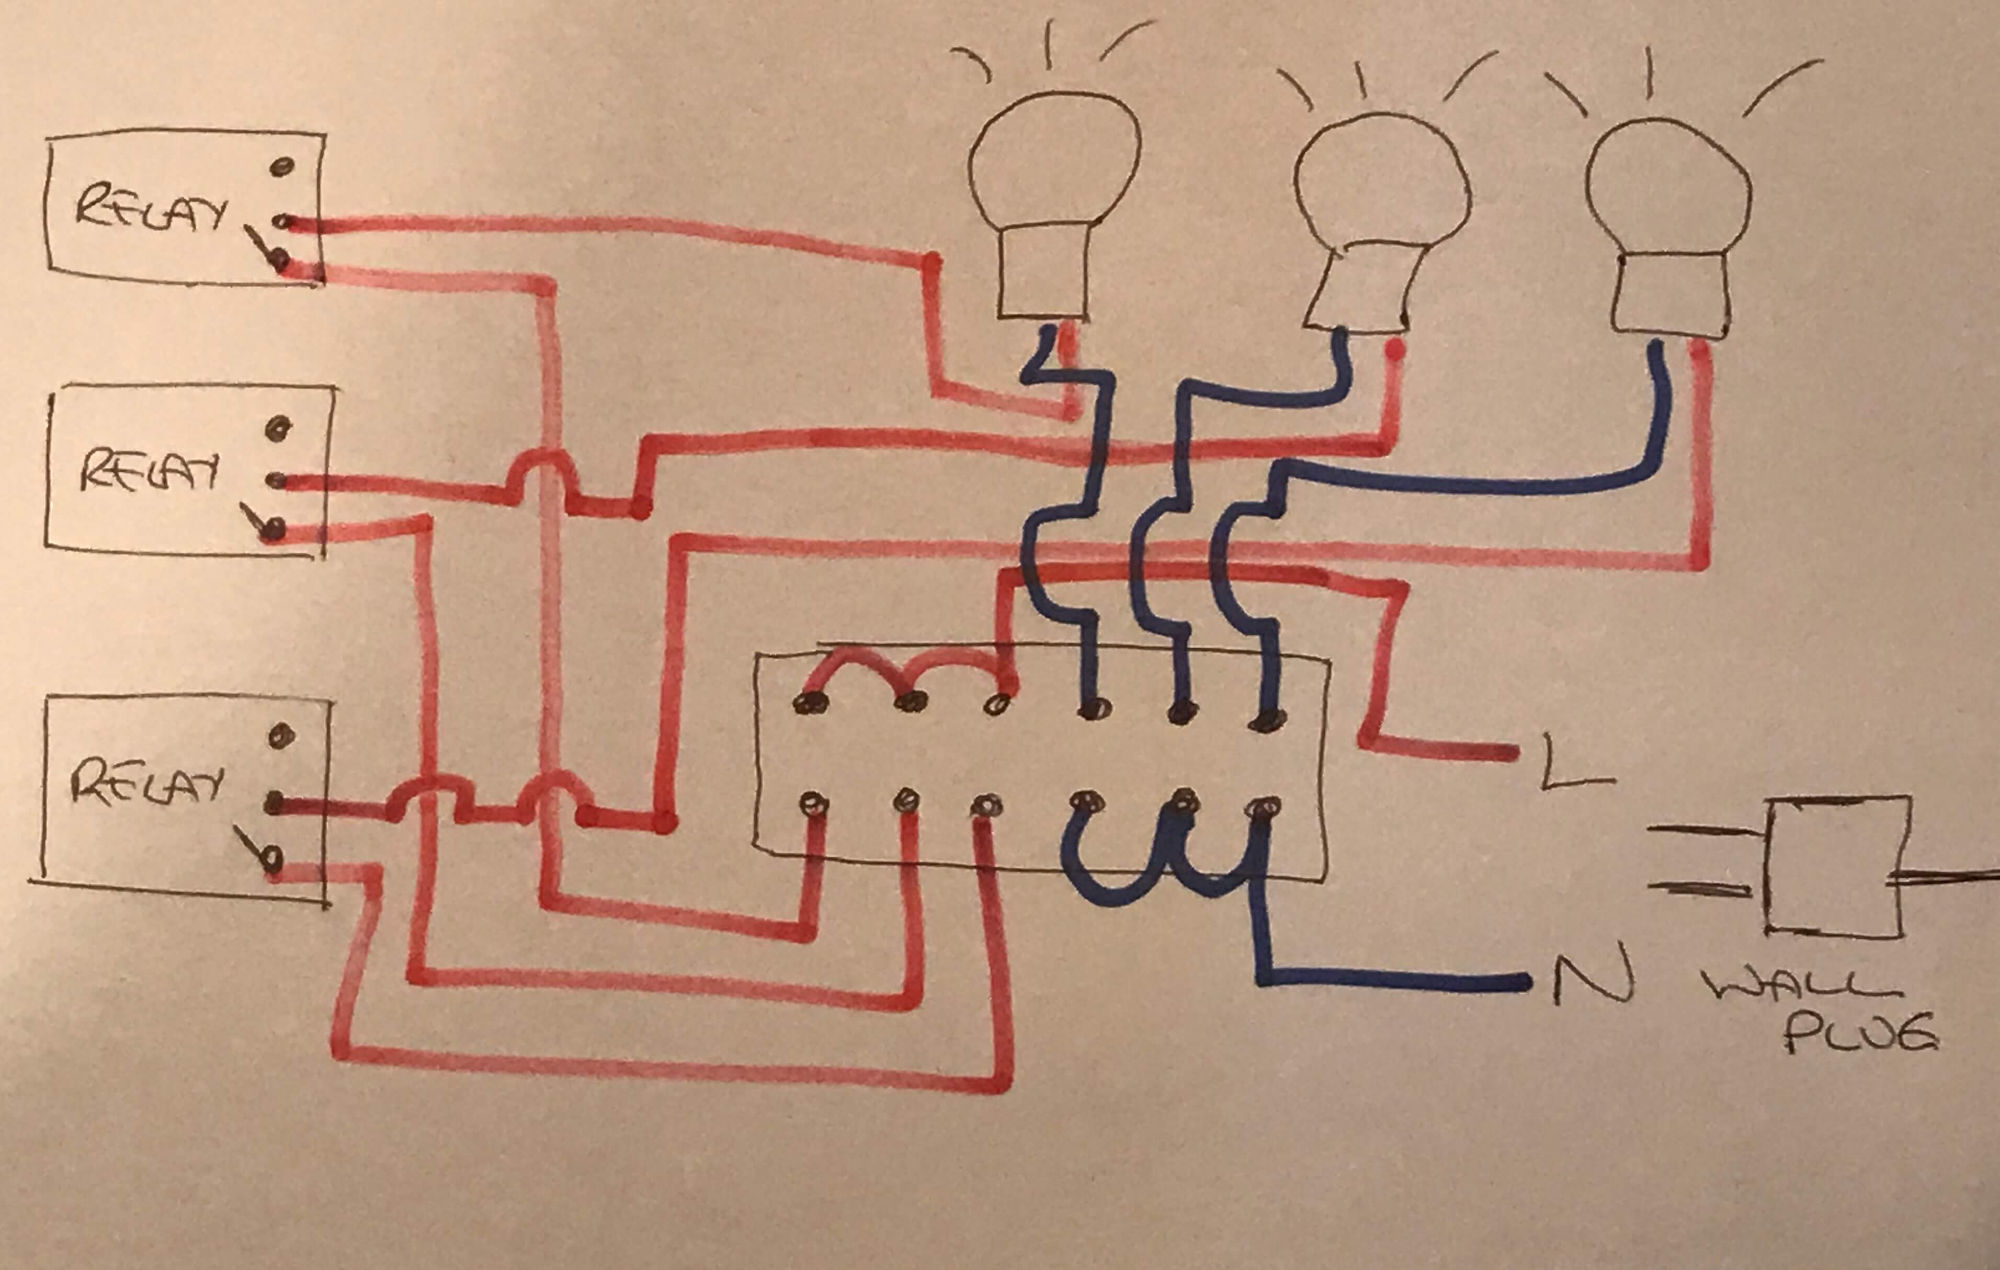 RELAY
RELAY
RELAY
L
N
WALL
PLUG